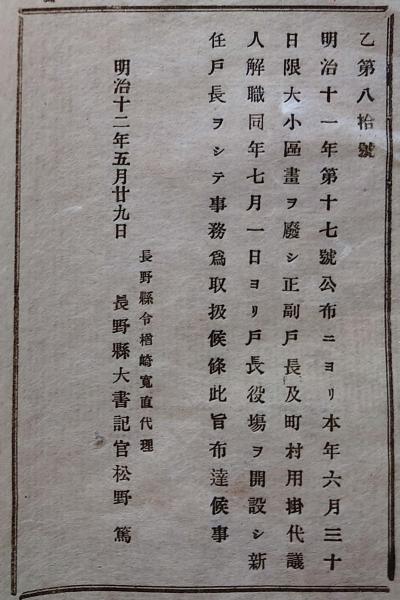 乙第八拾號
明治十一年第十七號公布ニヨリ本年六月三十
日限大小區畫ヲ廢シ正副戸長及町村用掛代議
人解職同年七月一日ヨリ戸長役塲ヲ開設シ新
任戸長ヲシテ事務爲取扱候條此旨布達候事
明治十二年五月廿九日
長野縣令楢崎寬直代理
長野縣大書記官松野篤